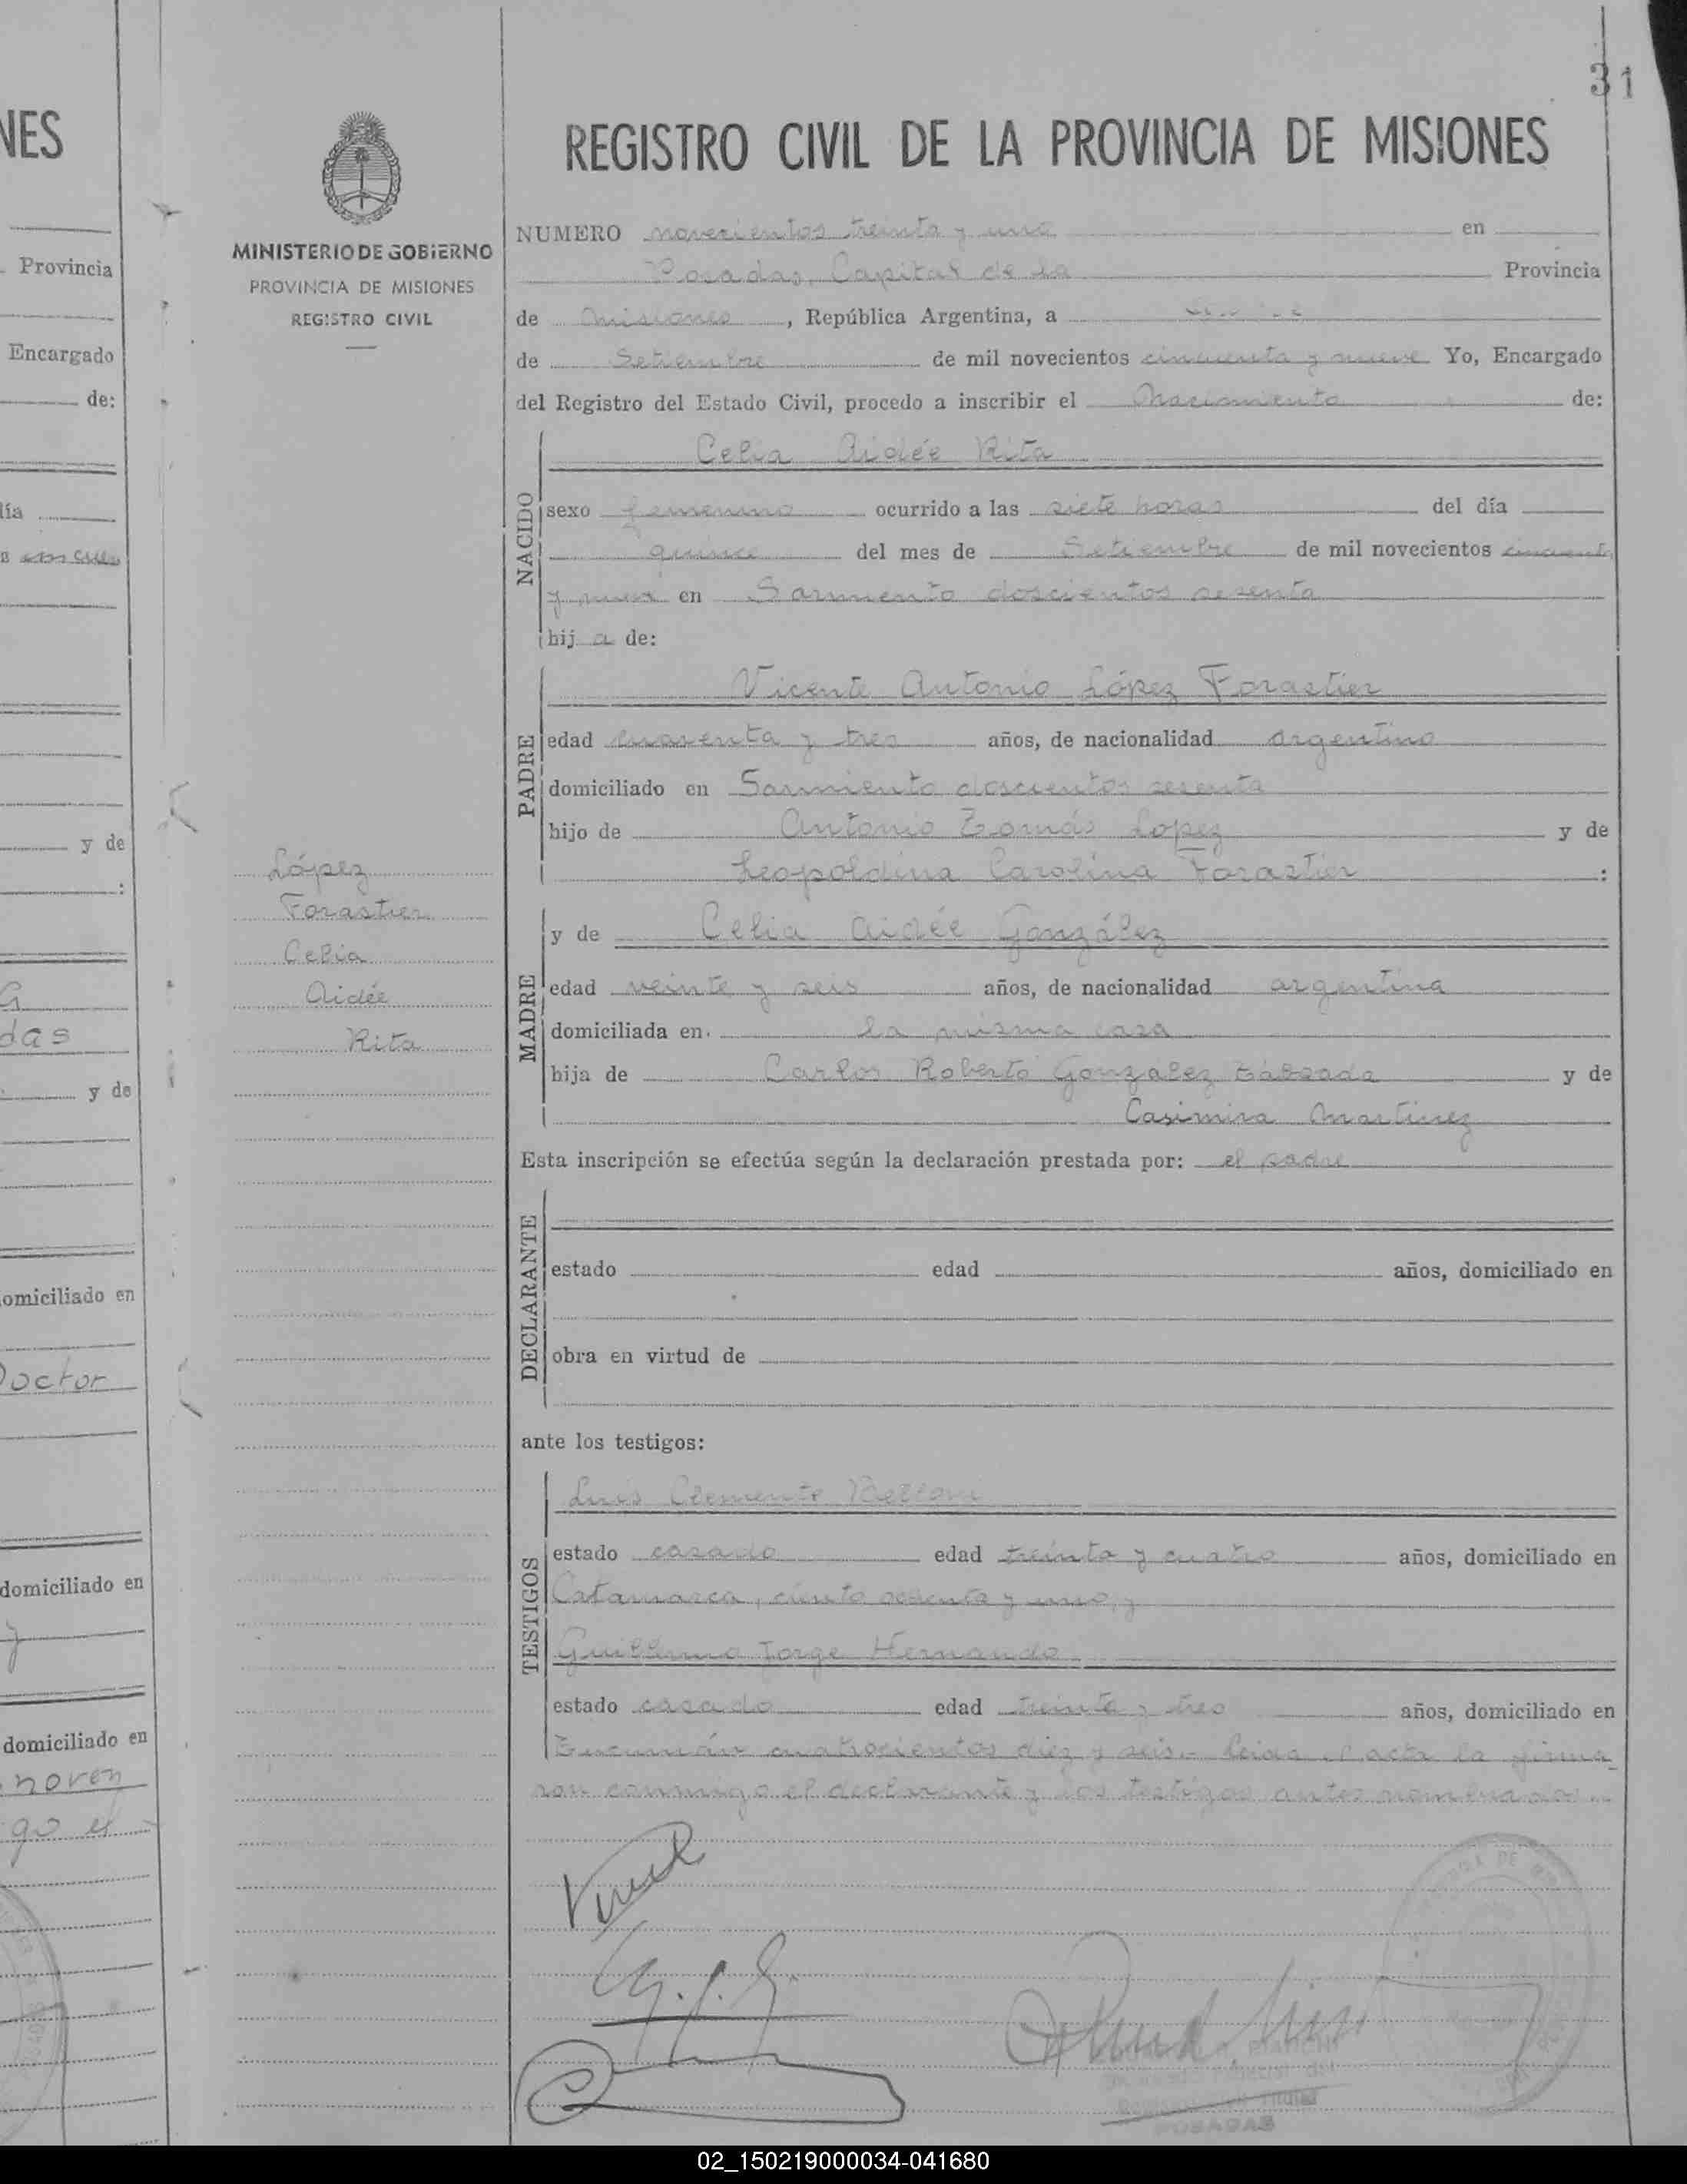 31
NES
REGISTRO CIVIL DE LA PROVINCIA DE MISIONES
MINISTERIO DE GOBIERNO
PROVINCIA DE MISIONES
REGISTRO CIVIL
Provincia
Encargado
de:
NUMERO novecientos treinta y uno en
Posadas, Capital de la Provincia
de Misiones, República Argentina, a
de Setiembre de mil novecientos cincuenta y nueve Yo, Encargado
del Registro del Estado Civil, procedo a inscribir el Nacimiento de:
NACIDO
Celia Aidée Rita
sexo femenino ocurrido a las siete horas del día
quince del mes de Setiembre de mil novecientos cincuenta
y nueve en Sarmiento doscientos sesenta
hij a de:
PADRE
Vicente Antonio López Forastier
edad cuarenta y tres años, de nacionalidad argentino
domiciliado en Sarmiento doscientos sesenta
hijo de Antonio Tomás Lopez y de
Leopoldina Carolina Forastier :
López
Forastier
Celia
Aidée
Rita
MADRE
y de Celia Aidée González
edad veinte y seis años, de nacionalidad argentina
domiciliada en. la misma casa
hija de Carlos Roberto González Taboada y de
Casimira Martinez
Esta inscripción se efectúa según la declaración prestada por: el padre
DECLARANTE
estado edad años, domiciliado en
obra en virtud de
ante los testigos:
TESTIGOS
Luis Clemente
estado casado edad treinta y cuatro años, domiciliado en
Catamarca, ciento sesenta y uno, y
Guillermo Jorge Hernando
estado casado edad treinta y tres años, domiciliado en
Tucumán cuatrocientos diez y seis.- Leida el acta la firma
ron conmigo el declarante y los testigos antes nombrados.-
das
y de
y de
omiciliado en
Doctor
domiciliado en
y
domiciliado en
noven
go el
POSADAS
02_150219000034-041680